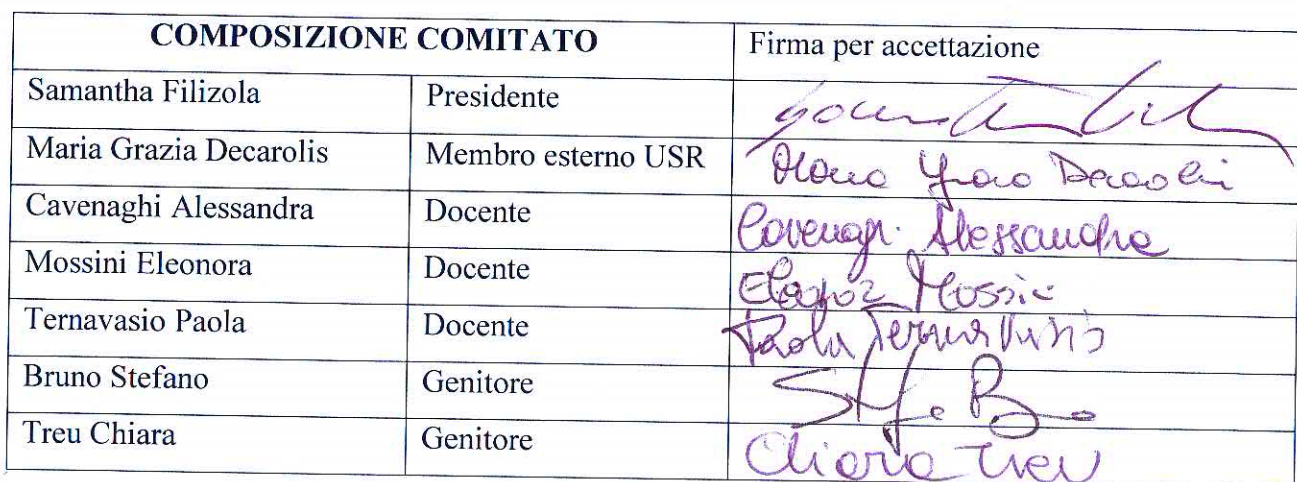 COMPOSIZIONE COMITATO Firma per accettazione
Samantha Filizola Presidente
Maria Grazia Decarolis Membro esterno USR
Cavenaghi Alessandra Docente Alessandra
Mossini Eleonora Docente
Ternavasio Paola Docente Paola
Bruno Stefano Genitore
Treu Chiara Genitore Chiara Treu